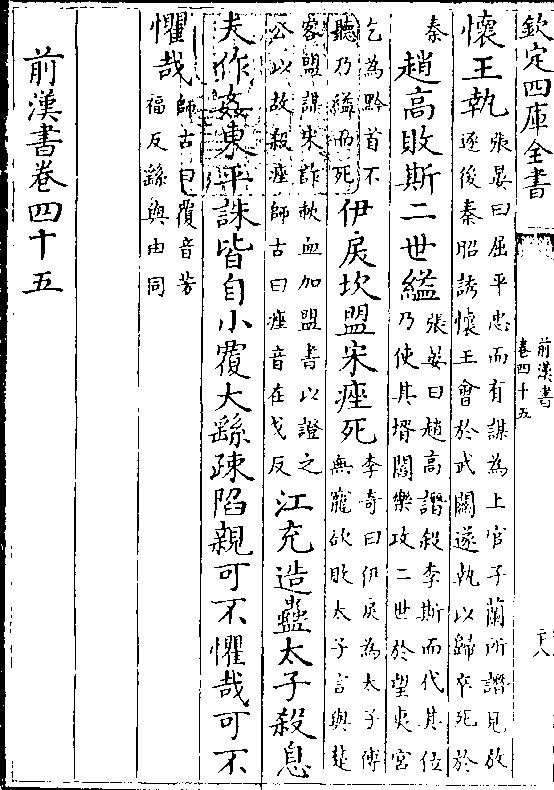 欽定四庫全書
前漢書
卷四十五
懷王執張晏曰屈平忠而有謀為上官子蘭所譖見放
逐後秦昭誘懷王會於武關遂執以歸卒死於
秦
趙高敗斯二世縊張晏曰趙高譖殺李斯而代其位
乃使其壻閻樂攻二世於望夷宮
乞為黔首不
聽乃縊而死
伊戾坎盟宋痤死李奇曰伊戾為太子傅
無寵欲敗太子言與楚
客盟謀宋詐歃血加盟書以證之
公以故殺痤師古曰痤音在戈反
江充造蠱太子殺息
夫作姦東平誅皆自小覆大繇疎陷親可不懼哉可不
懼哉師古曰覆音芳
福反繇與由同
前漢書卷四十五